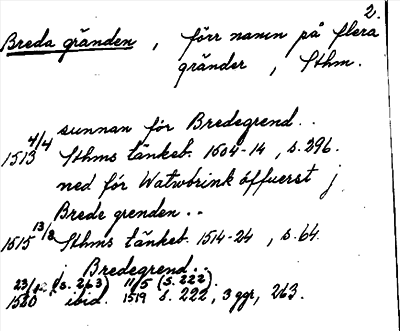 2.
Breda gränden, förr namn på flera
gränder, Sthm.
sunnan för Bredegrend..
1513 4/4 Sthms tänkeb. 1504-14, s. 296.
ned för Watwbrink öffuerst j
Brede grenden..
1515 13/8 Sthms tänkeb. 1514-24, s. 64.
j Bredegrend..
23/ (s. 263) 11/5 (s. 222).
1520 ibid. 1519 s. 222, 3 ggr, 263.